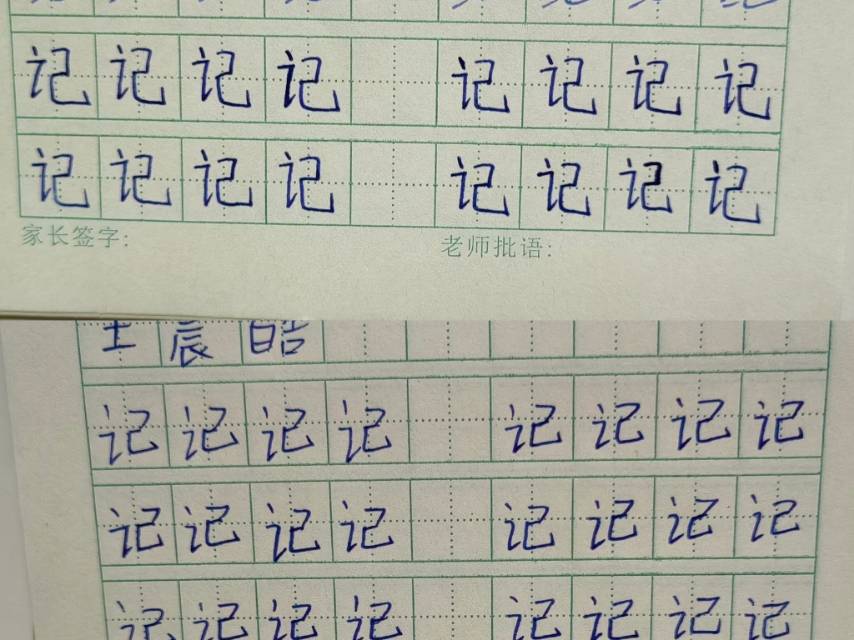 记记记记 记记记记
记记记记 记记记记
家长签字: 老师批语:
王晨皓
记记记记 记记记记
记记记记 记记记记
记记记记 记记记记